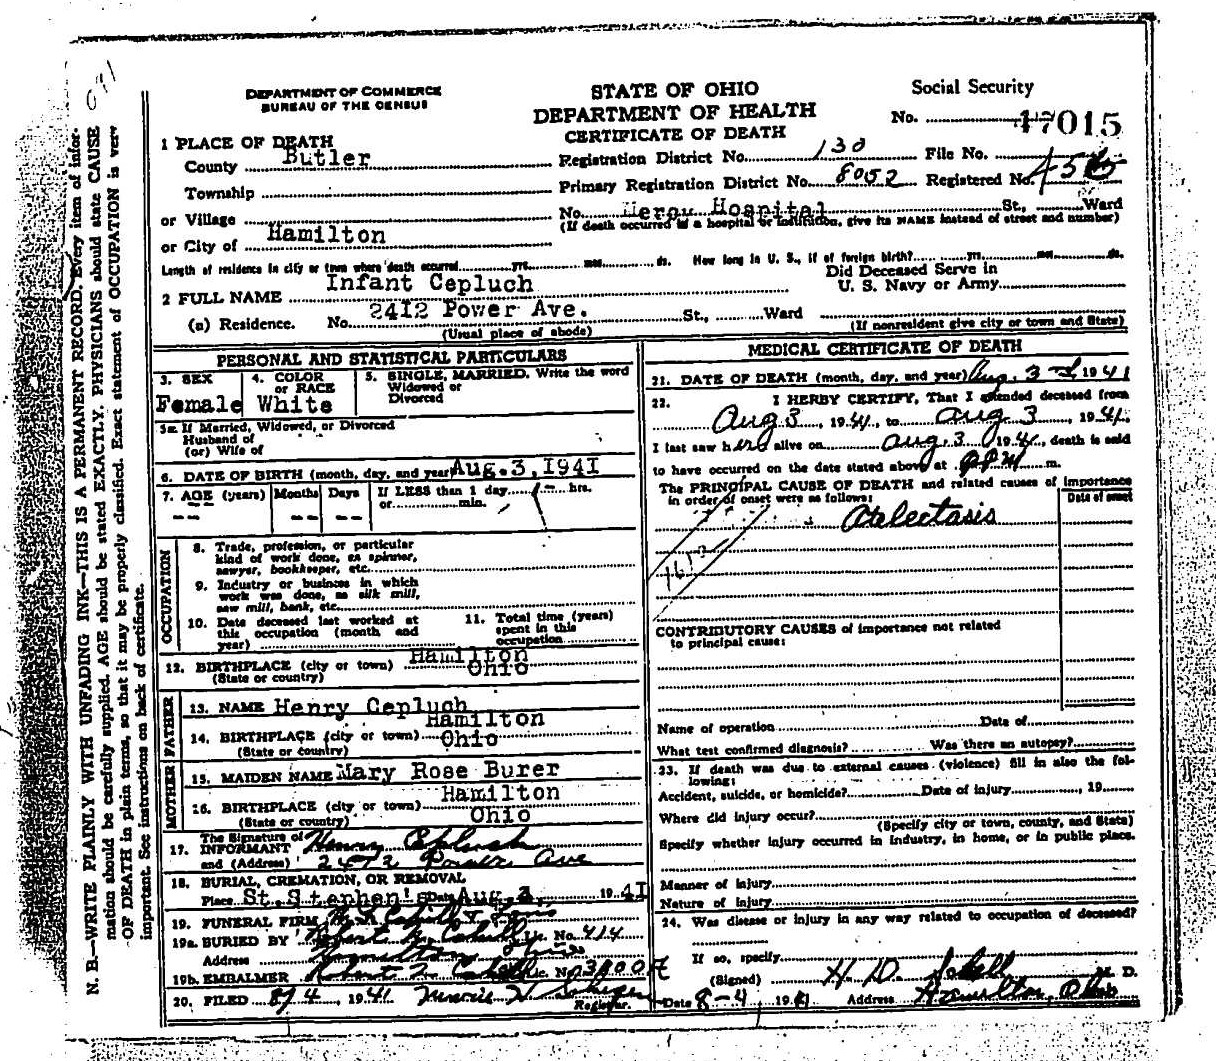 DEPARTMENT OF COMMERCE
BUREAU OF THE CENSUS
STATE OF OHIO
DEPARTMENT OF HEALTH
CERTIFICATE OF DEATH
Social Security
No. 47015
1 PLACE OF DEATH
County Butler
Registration District No. 130 File No.
Township
Primary Registration District No. 8052 Registered No.
or Village
No. Mercy Hospital St., Ward
(If death occurred in a hospital or institution, give its NAME instead of street and number)
or City of Hamilton
Length of residence in city or town where death occurred yrs. mos. ds. How long in U. S., if of foreign birth? yrs. mos. ds.
2 FULL NAME Infant Cepluch
Did Deceased Serve in
U. S. Navy or Army
(a) Residence. No. 2412 Power Ave. St., Ward
(Usual place of abode)
(If nonresident give city or town and State)
PERSONAL AND STATISTICAL PARTICULARS
3. SEX
Female
4. COLOR
or RACE
White
5. SINGLE, MARRIED. Write the word
Widowed or
Divorced
5a If Married, Widowed, or Divorced
Husband of
(or) Wife of
6. DATE OF BIRTH (month, day, and year) Aug.3,1941
7. AGE (years) Months Days If LESS than 1 day 1 hrs.
-- -- -- or min.
OCCUPATION
8. Trade, profession, or particular
kind of work done, as spinner,
sawyer, bookkeeper, etc.
9. Industry or business in which
work was done, as silk mill,
saw mill, bank, etc.
10. Date deceased last worked at
this occupation (month and
year)
11. Total time (years)
spent in this
occupation
12. BIRTHPLACE (city or town) Hamilton
(State or country) Ohio
FATHER
13. NAME Henry Cepluch
14. BIRTHPLACE (city or town) Hamilton
(State or country) Ohio
MOTHER
15. MAIDEN NAME Mary Rose Burer
16. BIRTHPLACE (city or town) Hamilton
(State or country) Ohio
The Signature of
17. INFORMANT Henry Cepluch
and (Address) 2412 Power Ave
18. BURIAL, CREMATION, OR REMOVAL
Place St.Stephen's Date Aug. 19 41
19. FUNERAL FIRM
19a. BURIED BY Robert Lic. No. 414
Address Hamilton, Ohio
19b. EMBALMER Robert Lic. No.
20. FILED 8/4, 1941
Registrar.
MEDICAL CERTIFICATE OF DEATH
21. DATE OF DEATH (month, day, and year) Aug. 3rd 1941
22. I HERBY CERTIFY, That I attended deceased from
Aug 3, 1941, to Aug 3, 1941.
I last saw her alive on Aug. 3 1941, death is said
to have occurred on the date stated above at m.
The PRINCIPAL CAUSE OF DEATH and related causes of importance
in order of onset were as follows:
Date of onset
Atelectasis
CONTRIBUTORY CAUSES of importance not related
to principal cause:
Name of operation Date of
What test confirmed diagnosis? Was there an autopsy?
23. If death was due to external causes (violence) fill in also the fol-
lowing:
Accident, suicide, or homicide? Date of injury, 19
Where did injury occur?
(Specify city or town, county, and State)
Specify whether injury occurred in industry, in home, or in public place.
Manner of injury
Nature of injury
24. Was disease or injury in any way related to occupation of deceased?
If so, specify
(Signed) H D. M. D.
Date 8-4 1941 Address Hamilton, Ohio
N. B.—WRITE PLAINLY WITH UNFADING INK—THIS IS A PERMANENT RECORD. Every item of infor-
mation should be carefully supplied. AGE should be stated EXACTLY. PHYSICIANS should state CAUSE
OF DEATH in plain terms, so that it may be properly classified. Exact statement of OCCUPATION is very
important. See instructions on back of certificate.